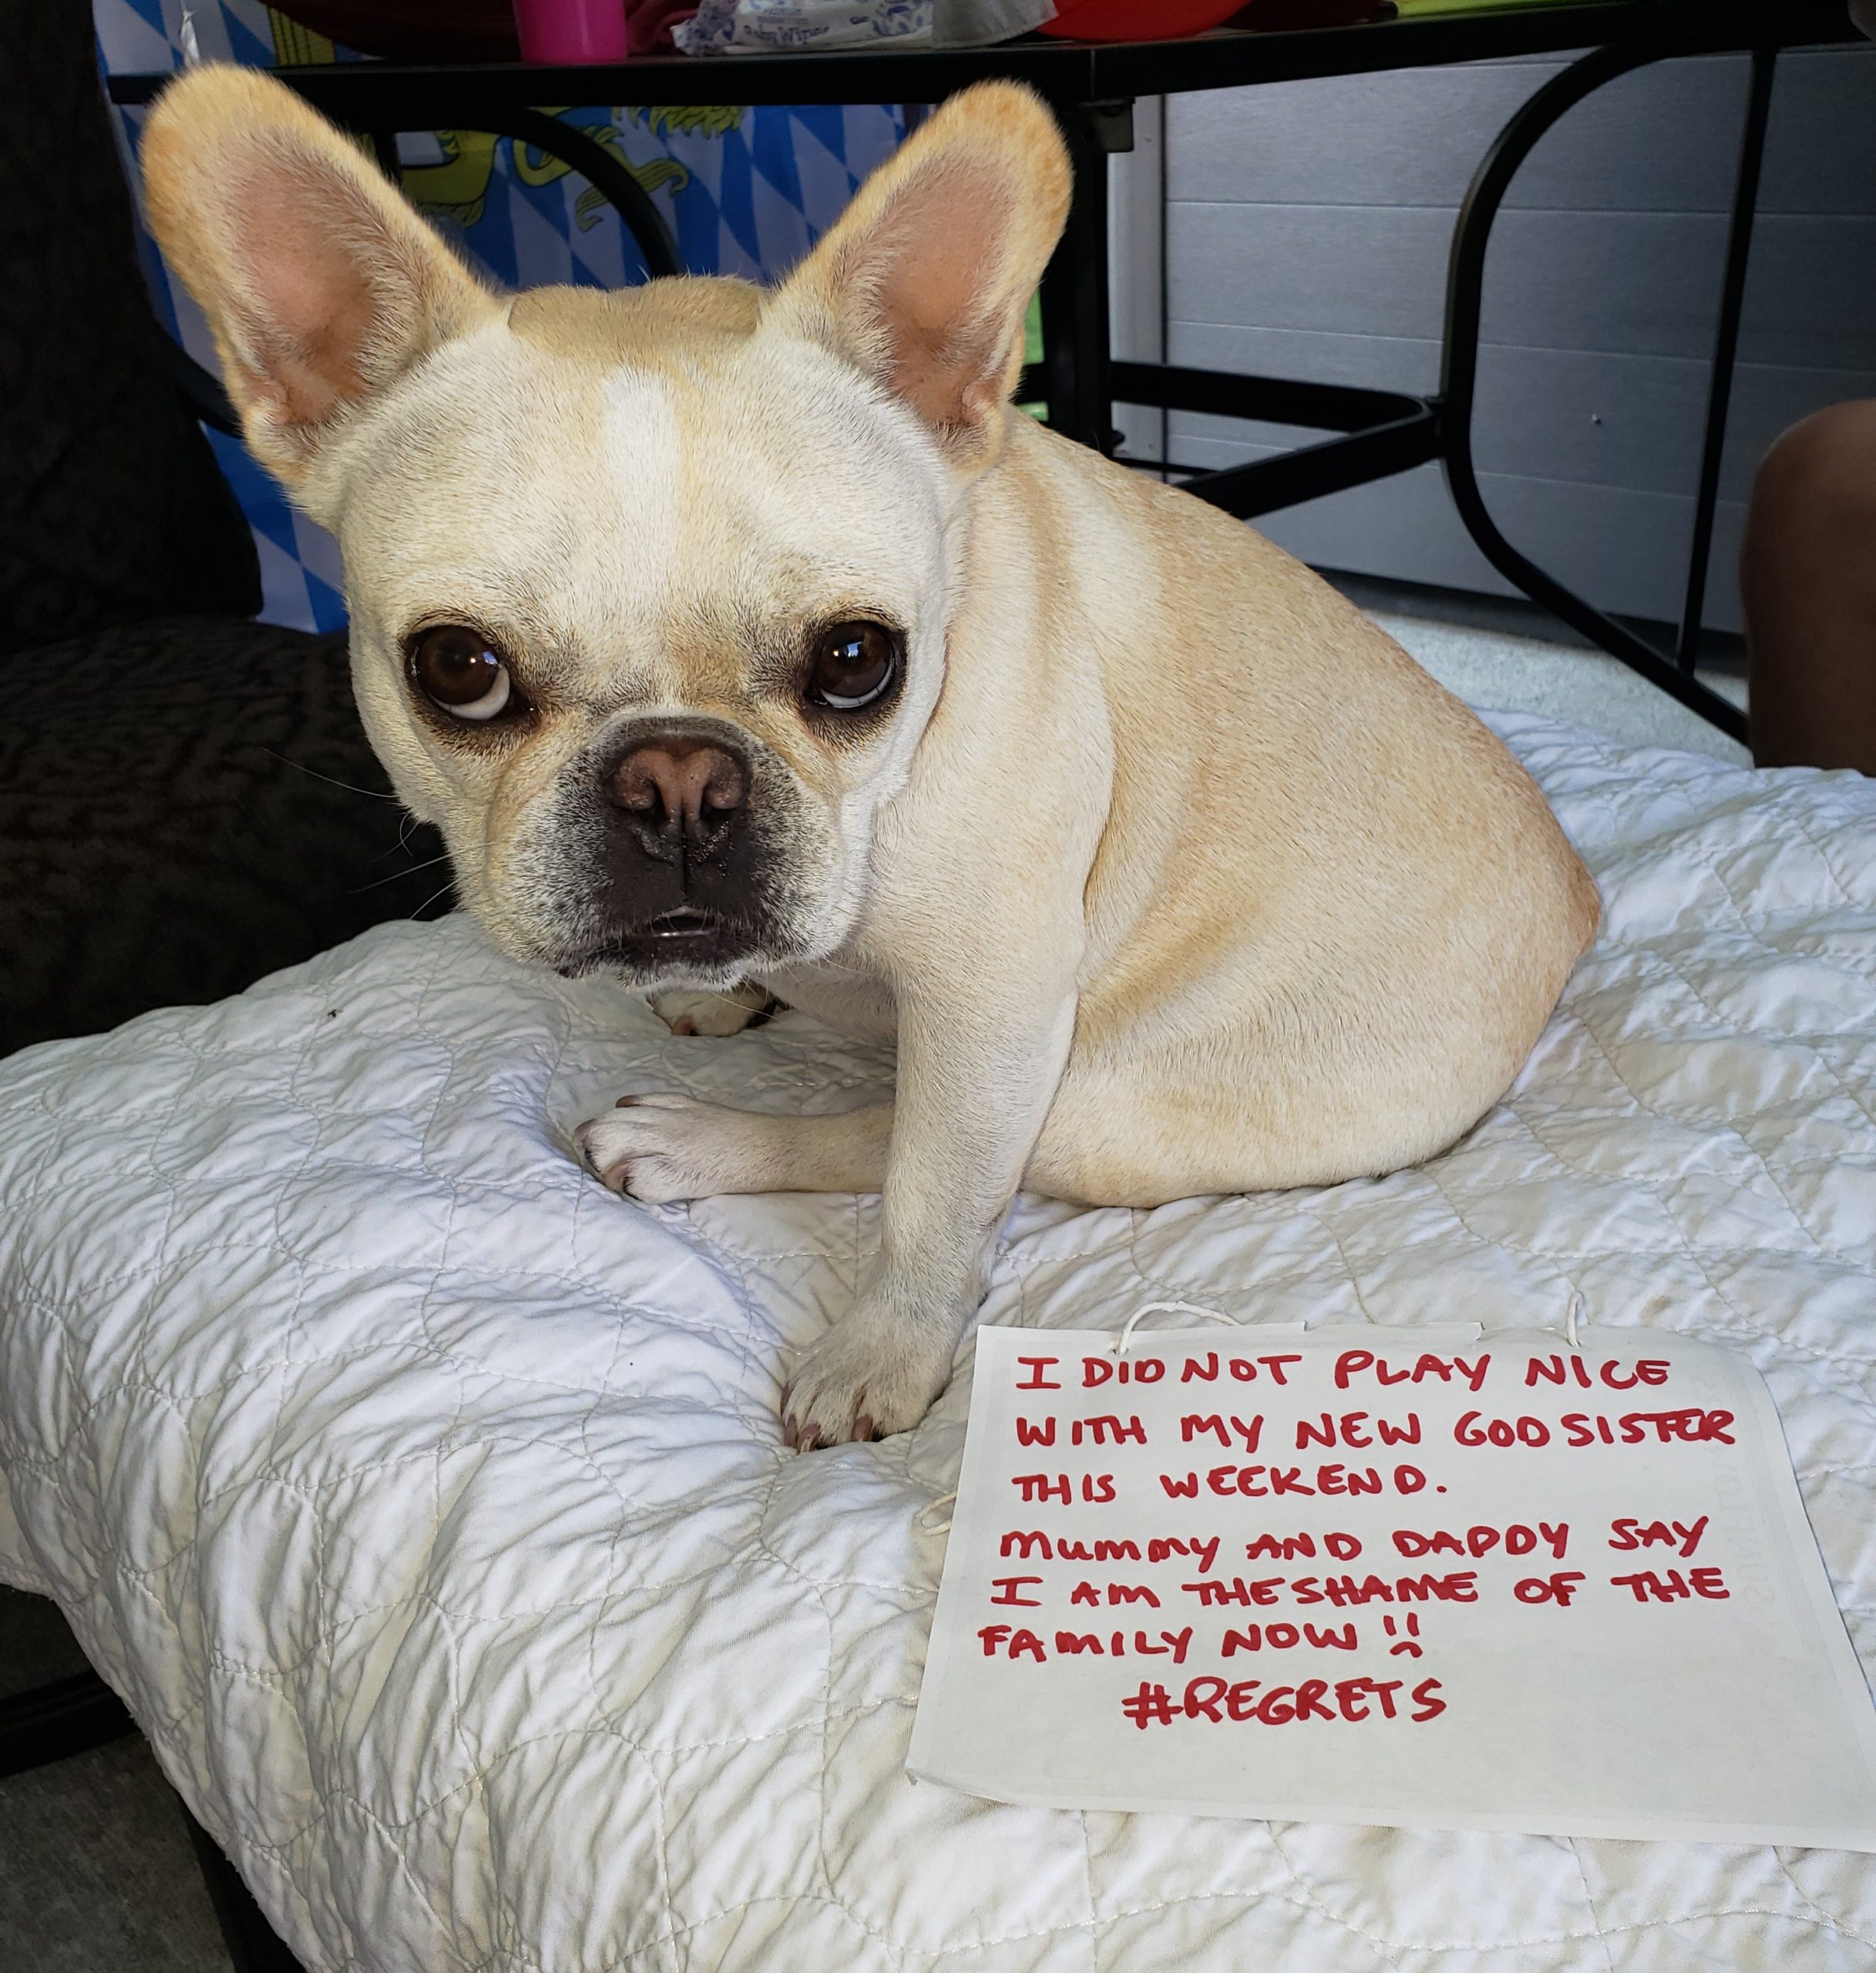 Baby Wipes
I DID NOT PLAY NICE
WITH MY NEW GODSISTER
THIS WEEKEND.
MUMMY AND DADDY SAY
I AM THE SHAME OF THE
FAMILY NOW !!
#REGRETS